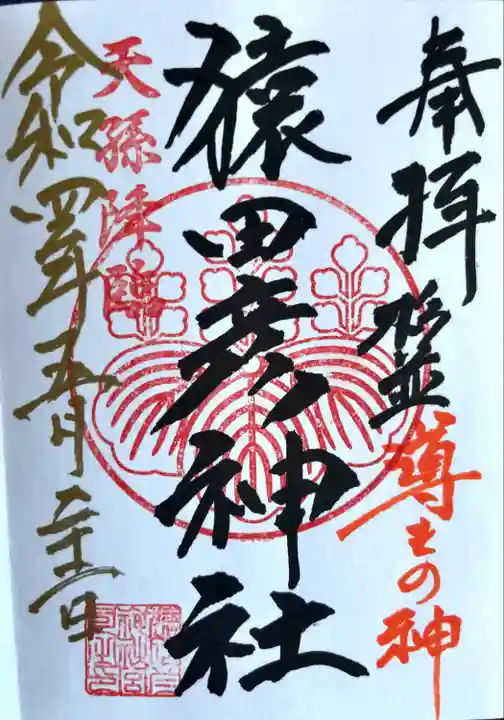 奉拝
導きの神
猿田彦神社
天孫降臨
令和四年五月二十二日